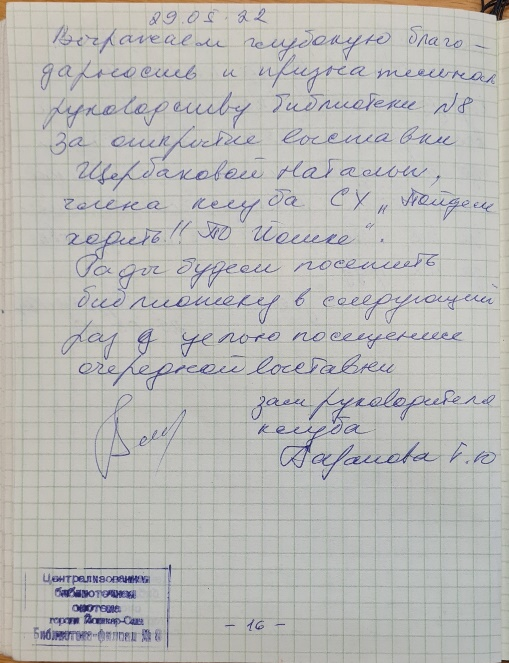 29.05.22
Выражаем глубокую благо-
дарность и признательная
руководству библиотеки №8
За открытие выставки
Щербаковой Натальи,
члена клуба СХ „Пойдем
ходить!! ТО Йошке“.
Рады будем посетить
библиотеку в следующий
раз с целью посещение
очередной выставки
зам руководителя
клуба
Баранова Т.Ю
Централизованная
библиотечная
система
города Йошкар-Олы
Библиотека-филиал № 8
- 16 -